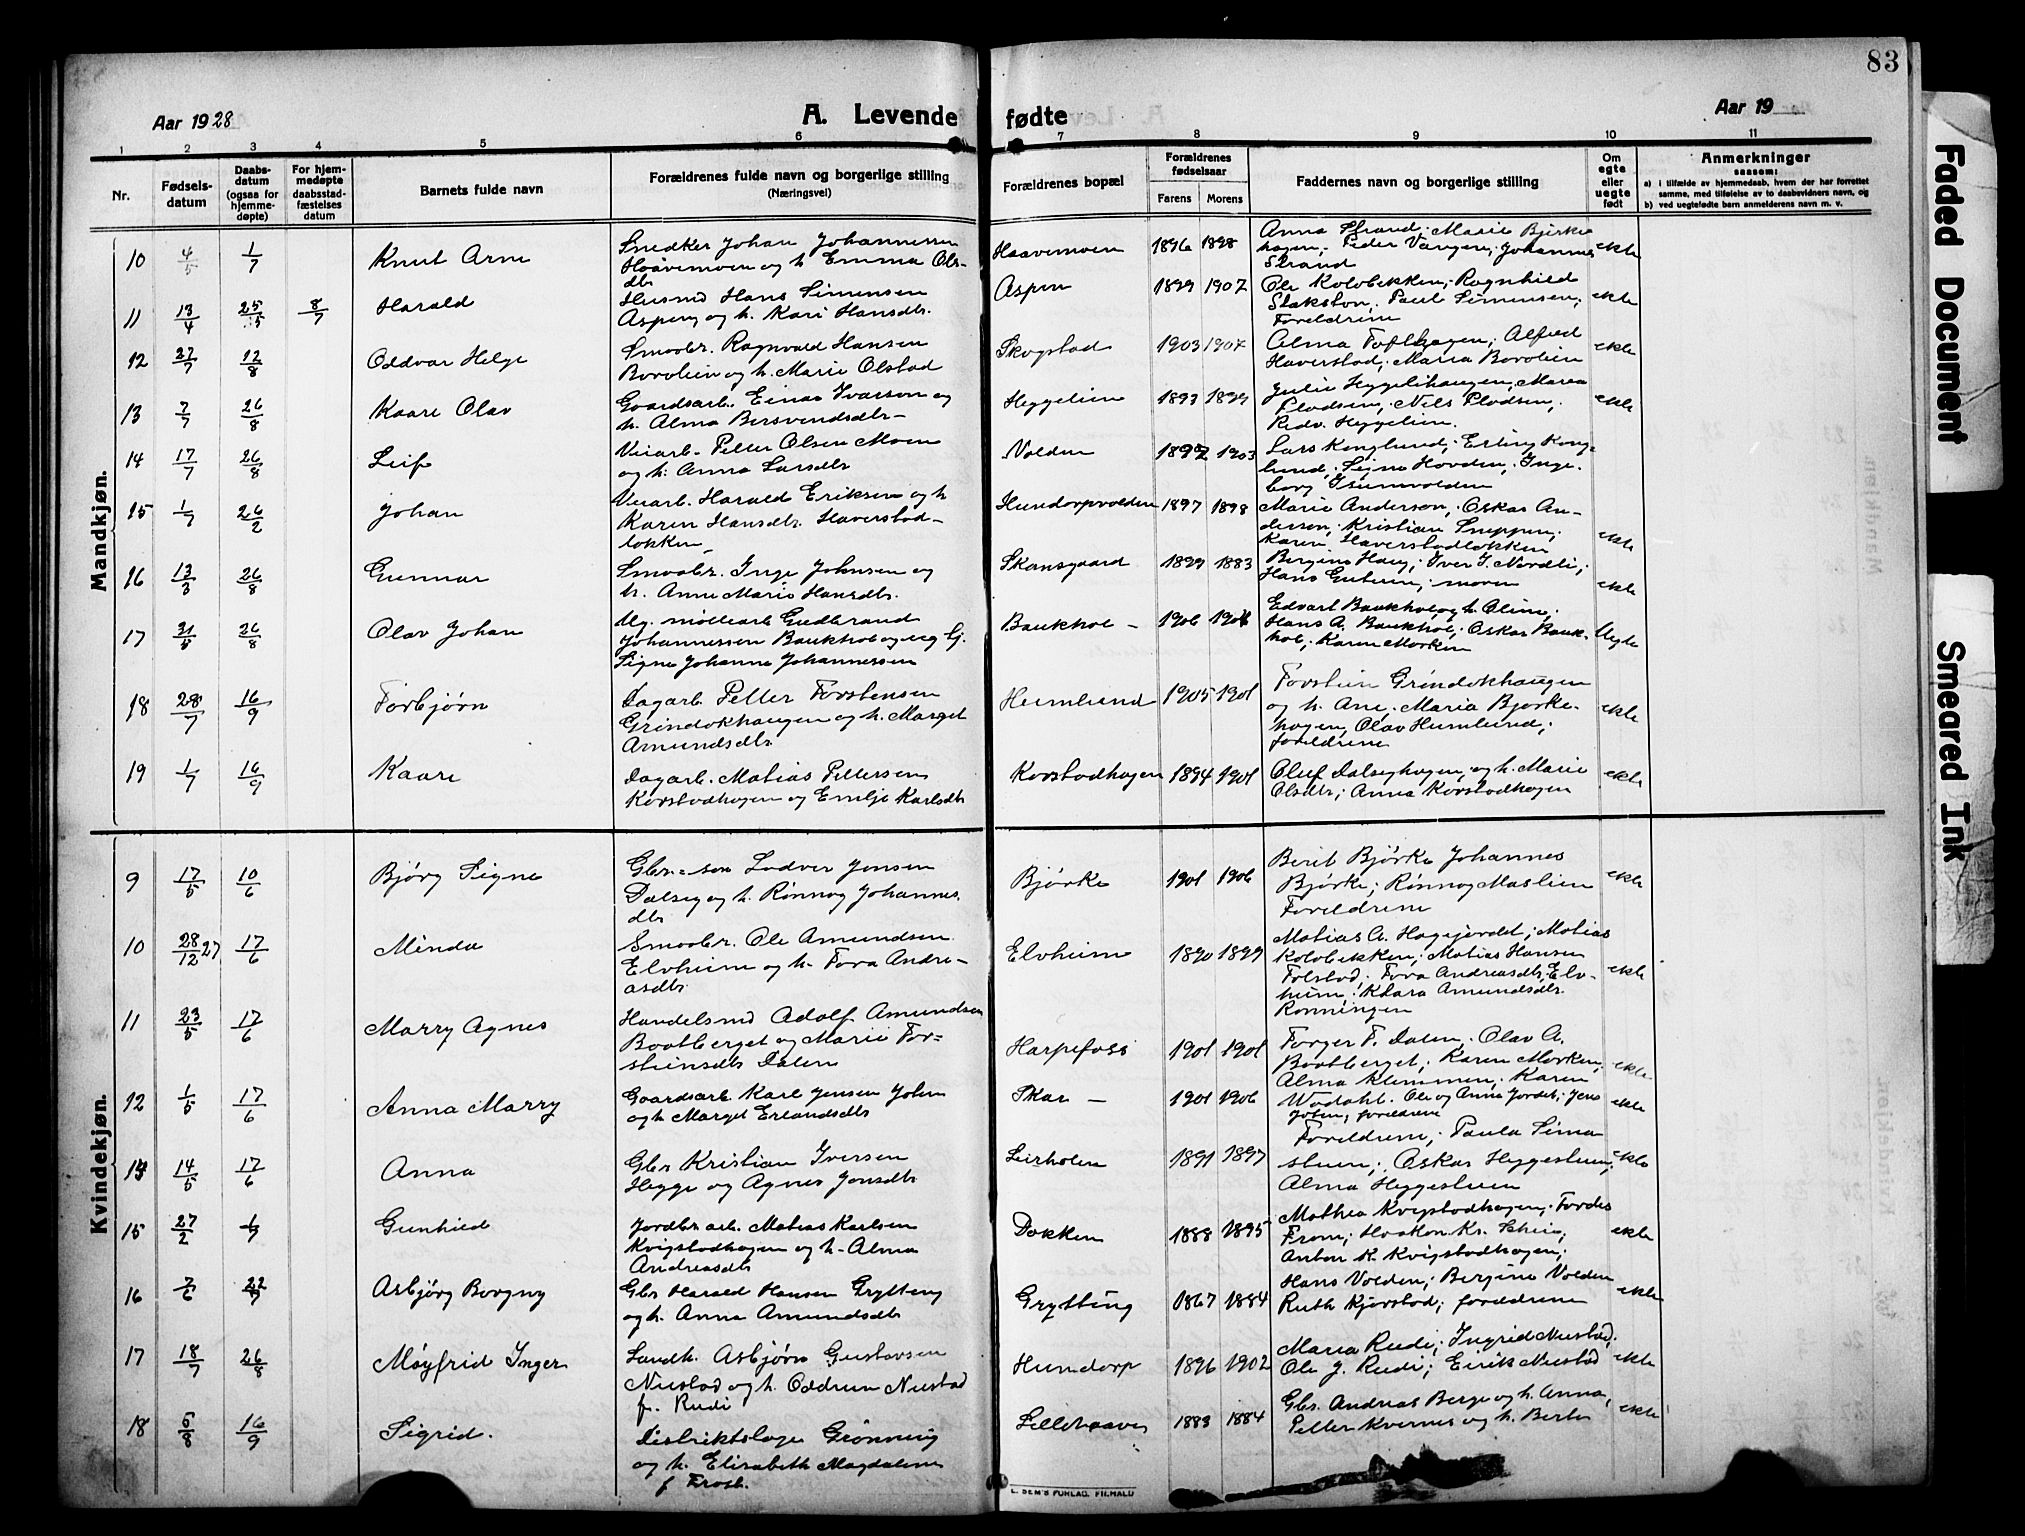 83
Aar 1928
A. Levende fødte
Aar 19
1 2 3 4 5 6 7 8 9 10 11
Nr.
Fødsels-
datum
Daabs-
datum
(ogsaa for
hjemme-
døpte)
For hjem-
medøpte
daabsstad-
fæstelses
datum
Barnets fulde navn
Forældrenes fulde navn og borgerlige stilling
(Næringsvei)
Forældrenes bopæl
Forældrenes
fødselsaar
Farens Morens
Faddernes navn og borgerlige stilling
Om
egte
eller
uegte
født
Anmerkninger
saasom:
a) i tilfælde av hjemmedaab, hvem der har forrettet
samme, med tilføielse av to daabsvidners navn, og
b) ved uegtefødte barn anmelderens navn m. v.
Mandkjøn.
10 4/5 1/7 Knut Arne
Snedker Johan Johannessen
Haavemoen og h. Emma Ols-
dtr
Haavemoen 1896 1898
Anna Strand; Marie Bjørke
hagen; Peder Vangen; Johannes
Strand
ekte
11 13/4 25/5 8/7 Harald
Husmd Hans Simensen
Aspen og h. Kari Hansdtr.
Aspen 1899 1902
Ole Kolobekken; Ragnhild
Slakston; Paul Simensen;
Foreldrene
ekte
12 27/7 12/8 Oddvar Helge
Smaabr. Ragnvald Hansen
og h. Marie Olstad
Skogstad 1903 1907
Alma Toftehagen; Alfred
Haverstad; Maria
ekte
13 7/7 26/8 Kaare Olav
Gaardsarb. Einar Ivarson og
h. Alma Bersvendsdtr-
Heggelien 1893 1899
Julie Heggelihaugen, Marea
Plodsen; Nils Plodsen;
Redv. Heggelien.
ekte
14 17/7 26/8 Leif
Veiarb. Petter Olsen Moen
og h. Anna Larsdtr
Volden 1892 1903
Lars Konglund; Erling Kong-
lund; Signe Hovden; Inge-
borg
15 1/7 26/2 Johan
Veiarb. Harald Eriksen og h
Karen Hansdtr. Haverstad-
løkken
Hundorpvolden 1897 1898
Marie Anderson; Oskar An-
derson; Kristian Sneppen;
Karen Haverstadløkken
ekte
16 13/3 26/8 Gunnar
Smaabr. Inge Johnsen og
h. Anne Marie Hansdtr.
Skansgaard 1899 1883
Bergine Haug; Iver J. Nordli;
Hans Gutuen; moren
ekte
17 31/5 26/8 Olav Johan
Ug. møllearb Gudbrand
Johannessen Baukhol og ug Gj.
Signe Johanne Johannessen
Baukhol - 1906 1908
Edvart Baukhol og h. Oline;
Hans A. Baukhol; Oskar Bauk-
hol; Karen Morken
Uegte
18 28/7 16/9 Torbjørn
Dagarb Petter Torstensen
Grindokhaugen og h. Marget
Amundsdtr
Humlund 1905 1901
Torstein Grindokhaugen
og h. Ane; Maria Bjørke-
hagen, Olav Humlund;
foreldrene
ekte
19 1/7 16/9 Kaare
Dagarb. Matias Pettersen
Korstadhagen og Emilje Karlsdtr
Korstadhagen 1894 1901
Oluf Dalseghagen; og h. Marie
Olsdtr; Anna Korstadhagen
ekte
Kvindekjøn.
9 17/5 10/6 Bjørg Signe
Gbr.-søn Lodver Jonsen
Dalseg og h. Rønnog Johannes.
dtr
Bjørke 1901 1906
Berit Bjørke Johannes
Bjørke; Rønnog Maslien
Foreldrene
ekte
10 28/12 27 17/6 Minda
Smaabr. Ole Amundsen
Elvheim og h. Tora Andre-
asdtr
Elvheim 1890 1899
Matias A. Hagejordet; Matias
Kolobekken; Matias Hansen
Tolstad; Tora Andreasdtr. Elv-
heim; Klara Amundsdtr.
Rønningen
ekte
11 23/5 17/6 Marry Agnes
Handelsmd Adolf Amundsen
Baatberget og Marie Tor-
steinsdtr Dalen
Harpefoss 1901 1901
Torger T. Dalen; Olav A.
Baatberget; Karen Morken;
Alma Klemmen; Karen
ekte
12 1/5 17/6 Anna Marry
Gaardsarb Karl Jensen
og h Marget Erlandsdtr
Skar - 1901 1906
Wadahl. Ole og Anne Jordet; Jens
foreldrene
ekte
14 14/5 17/6 Anna
Gbr Kristian Iversen
Hegge og Agnes Jonsdtr
Leirholen 1891 1897
Foreldrene; Paula Sima
stuen; Oskar Heggestuen;
Alma Heggestuen
ekte
15 27/2 1/7 Gunhild
Jordbr arb. Matias Karlsen
Kvigstadhagen og h. Alma
Andreasdtr
Dokken 1888 1895
Mathea Kvigstadhagen; Tordis
From; Haakon Kr. Scheie;
Anton K. Kvigstadhagen;
ekte
16 7/6 22/7 Asbjørg Borgny
Gbr Harald Hansen Grytting
og h. Anna Amundsdtr
Grytting 1867 1884
Hans Volden; Bergine Volden
Ruth Kjørstad; foreldrene
ekte
17 18/7 26/8 Møyfrid Inger
Landh. Asbjørn Gustavsen
Nustad og h. Oddrun Nustad
f. Rudi
Hundorp 1896 1902
Maria Rudi; Ingrid Nustad;
Ole J. Rudi; Eirik Nustad
ekte
18 5/8 16/9 Sigrid.
Distriktslæge Grønning
og h. Elisabeth Magdalene
f Frost.
Lillehaave 1883 1884
Gbr. Andreas Berge og h. Anna,
Petter Kvernes og h. Berte
ekte
L. SEM'S FORLAG, FR.HALD
Faded Document
Smeared Ink